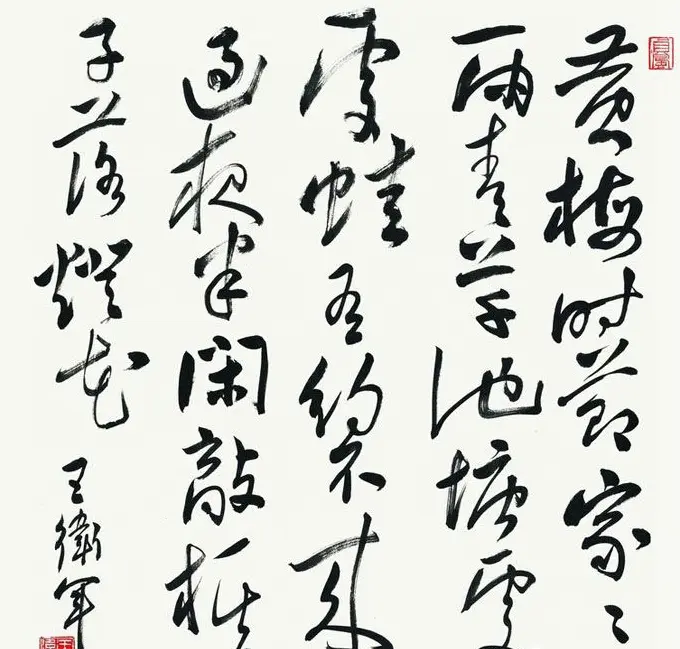 黄梅时节家〻
雨青草池塘处
处蛙有约不来
过夜半闲敲棋
子落灯花
王卫军